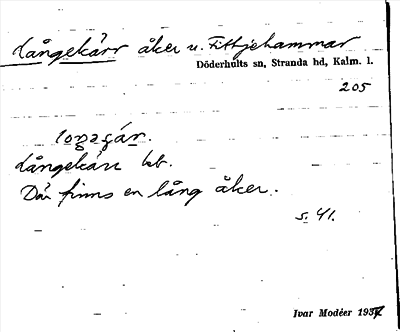 Långekärr åker u. Fittjehammar
Döderhults sn, Stranda hd, Kalm. l.
205
Långekärr
Där finns en lång åker.
s. 41.
Ivar Modéer 193